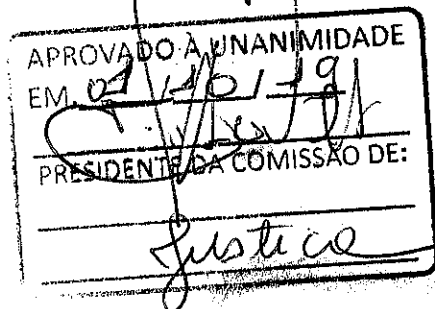 APROVADO À UNANIMIDADE
EM 01/10/19
PRESIDENTE DA COMISSÃO DE:
Justiça